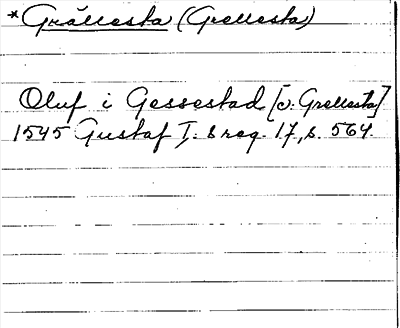 *Grällesta (Grellesta)
Oluf i Gessestad [o. Grellesta]
1545 Gustaf I. s reg. 17, s. 564.